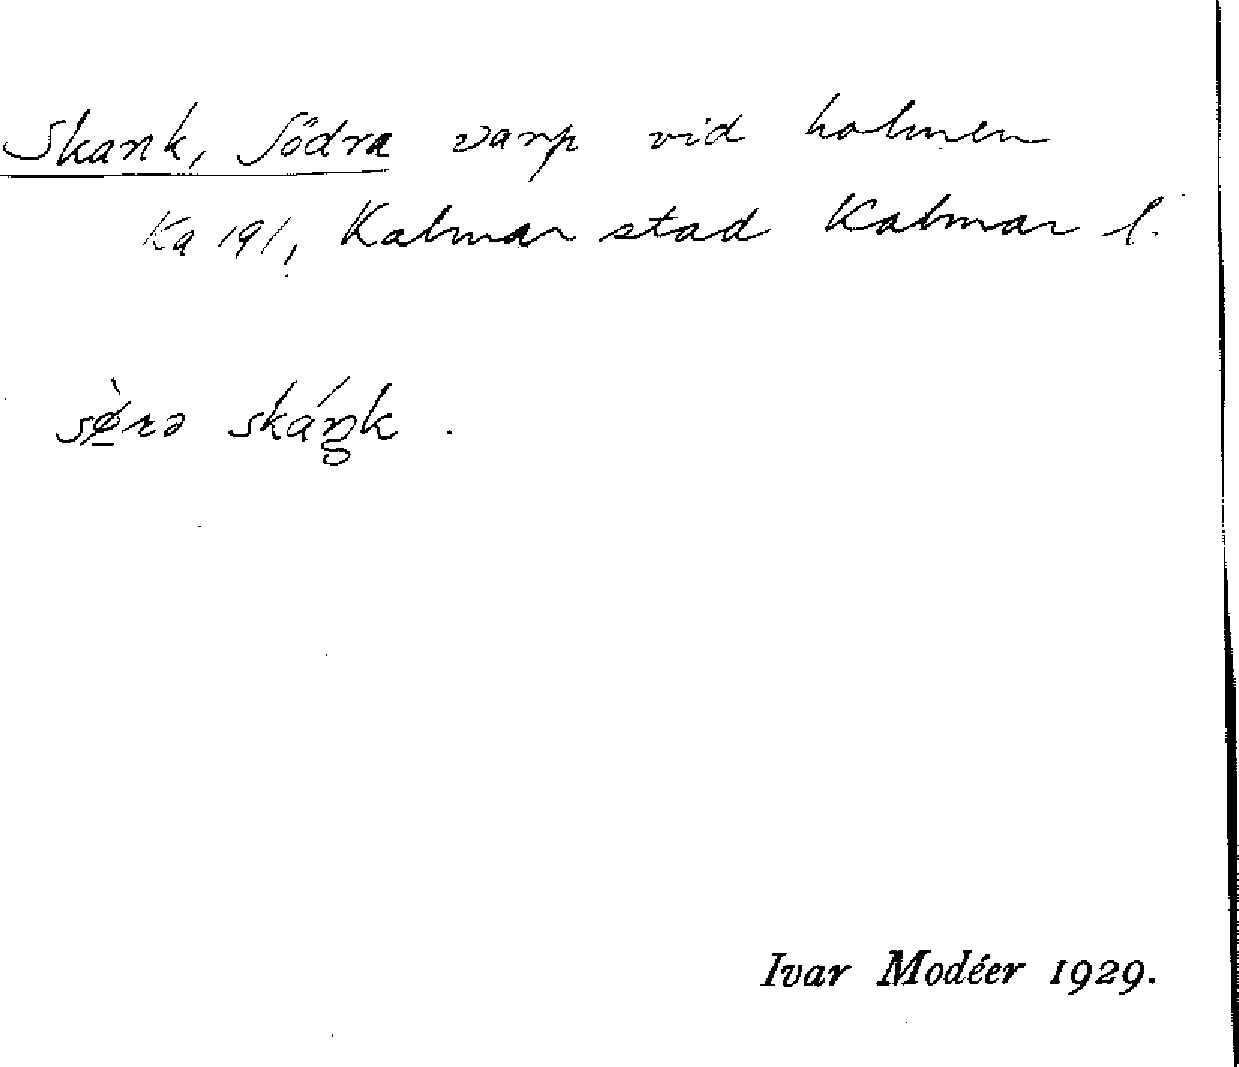 Skank, Södra varp vid holmen
Ka 191, Kalmar stad Kalmar l.
sø̀rə skáŋk .
Ivar Modéer 1929.